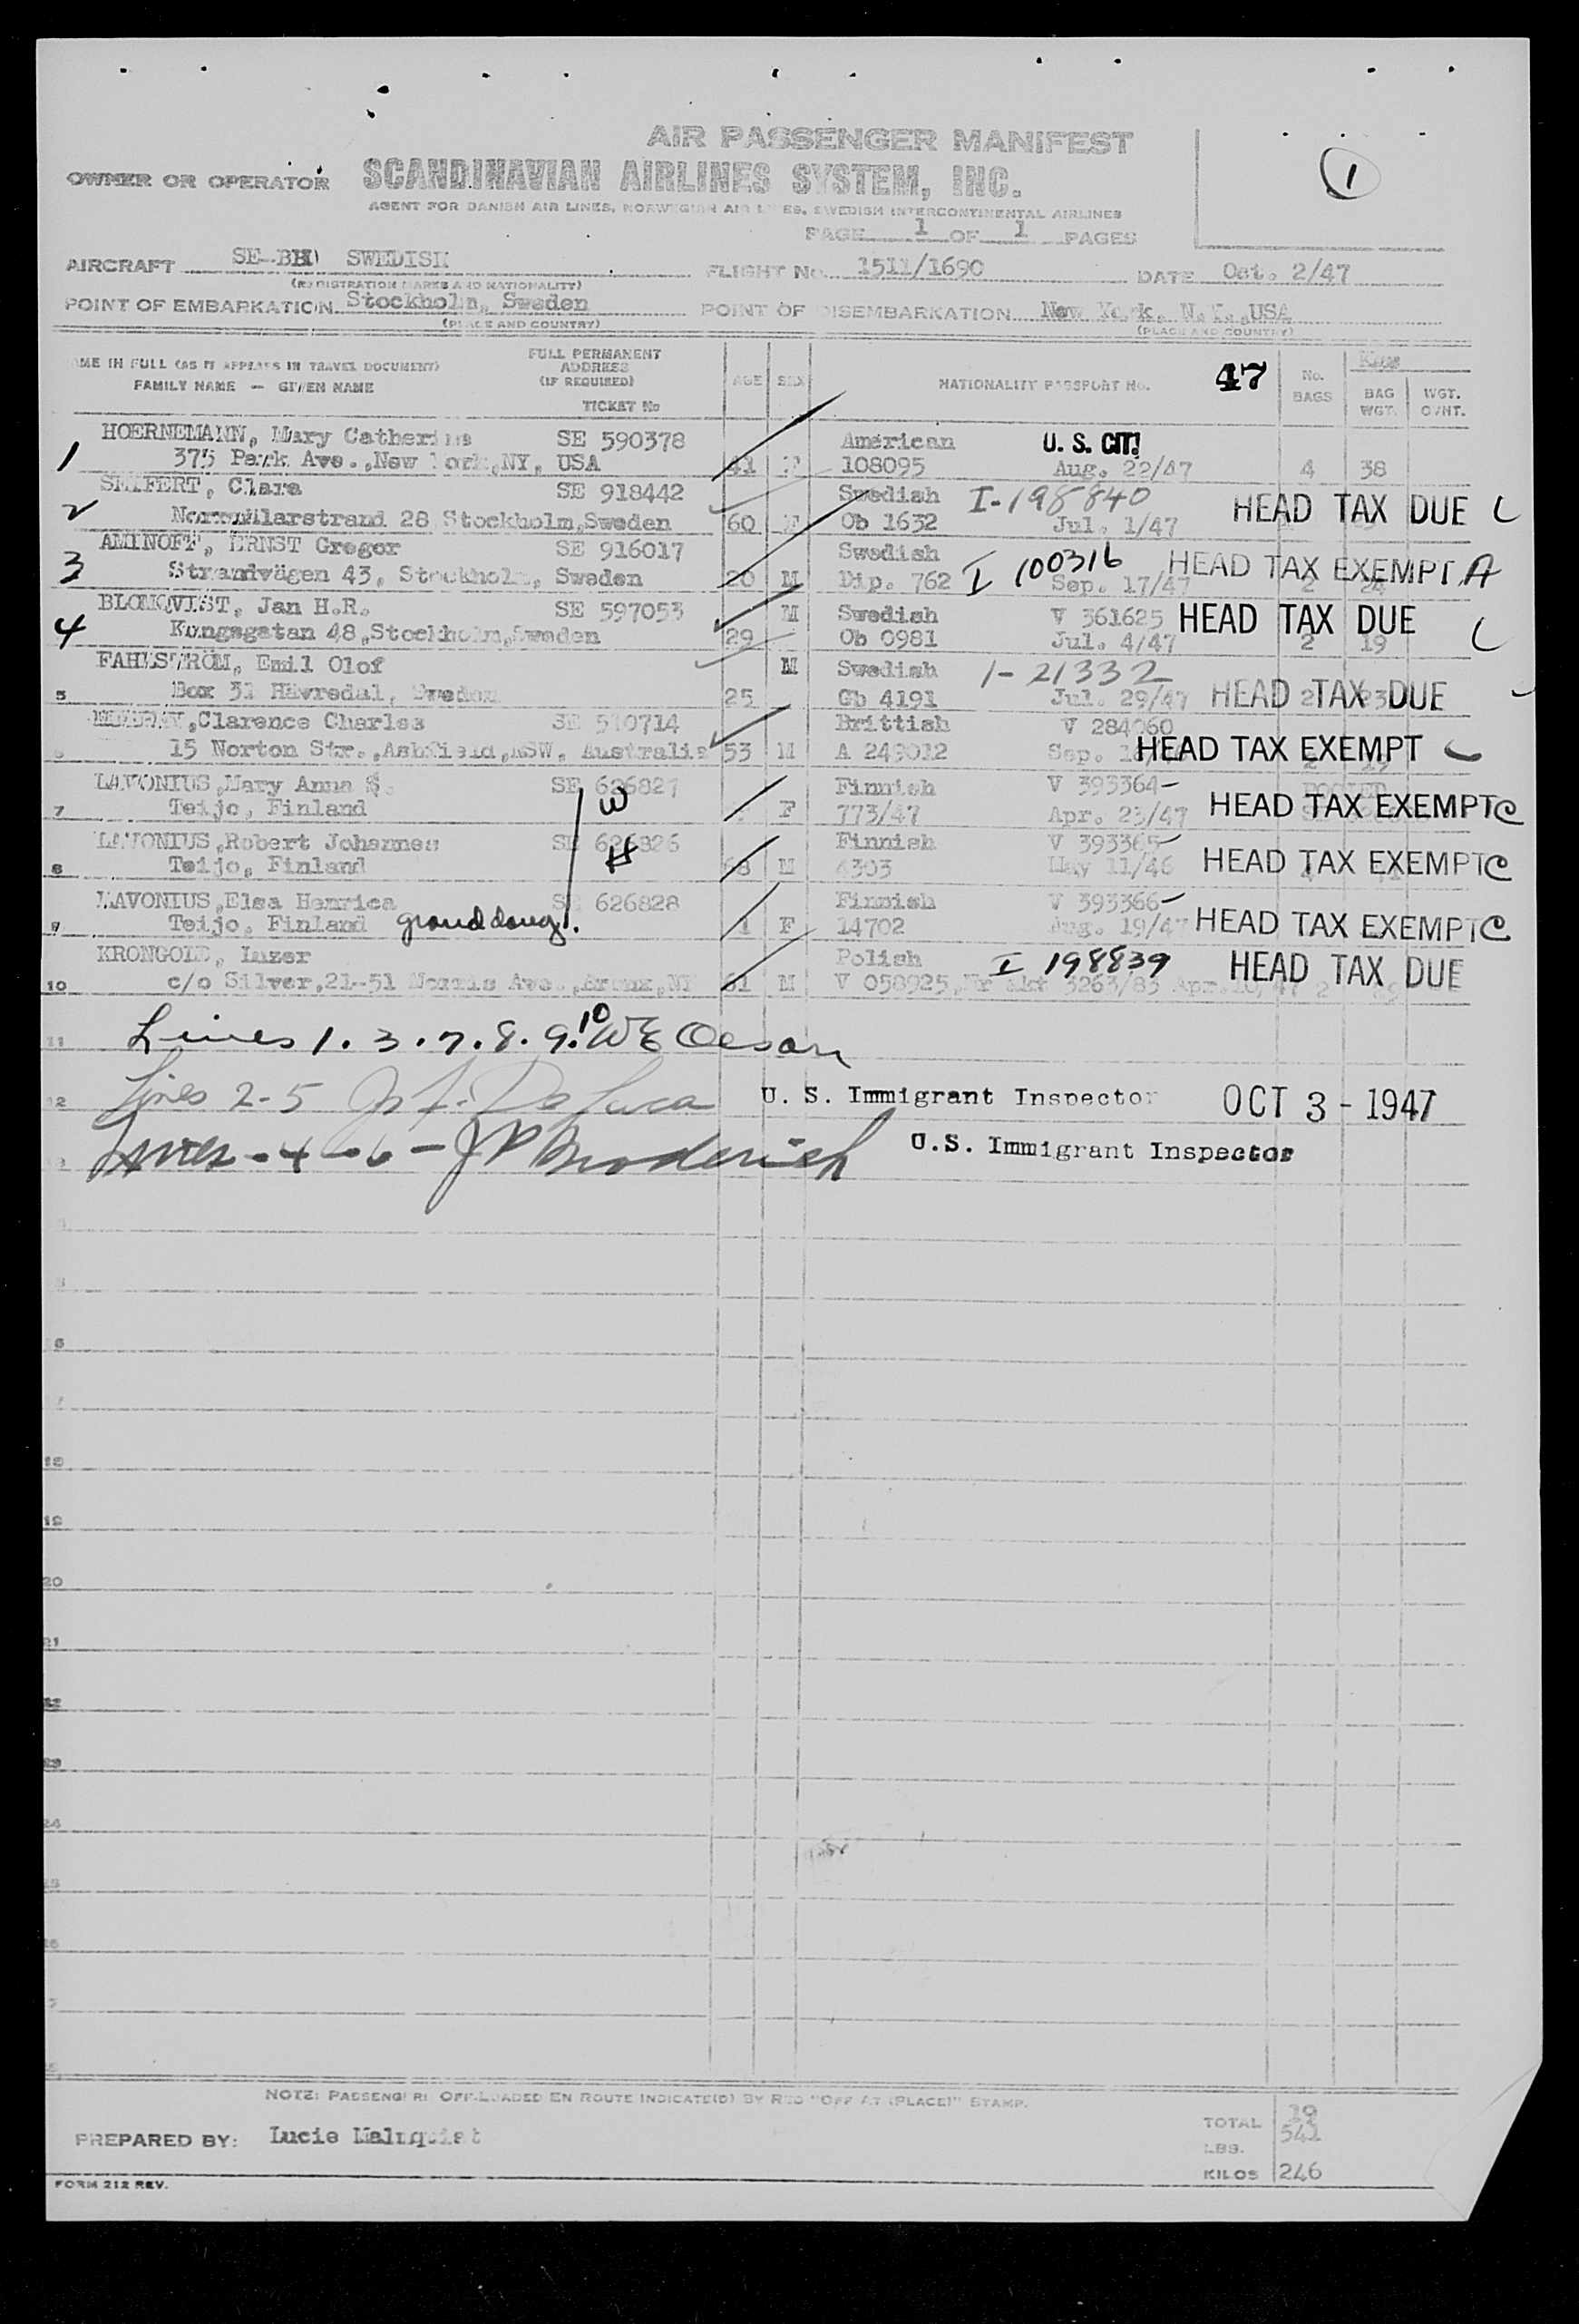 AIR PASSENGER MANIFEST
1
OWNER OR OPERATOR SCANDINAVIAN AIRLINES SYSTEM, INC.
AGENT FOR DANISH AIR LINES, NORWEGIAN AIR LINES, SWEDISH INTERCONTINENTAL AIRLINES
PAGE 1 OF 1 PAGES
AIRCRAFT SWEDISH FLIGHT No. 1511/1690 DATE Oct. 2/47
(REGISTRATION MARKS AND NATIONALITY)
POINT OF EMBARKATION Stockholm, Sweden POINT OF DISEMBARKATION New York, N.Y., USA
(PLACE AND COUNTRY) (PLACE AND COUNTRY)
NAME IN FULL (AS IT APPEARS IN TRAVEL DOCUMENT) FULL PERMANENT ADDRESS (IF REQUIRED) AGE SEX NATIONALITY PASSPORT No. 47 No. BAGS Kilos BAG WGT. WGT. OVHT.
FAMILY NAME — GIVEN NAME TICKET No
HOERNEMANN, Mary Catherine SE 590378 American U. S. CIT.
1 375 Park Ave., New York, NY, USA 41 F 108095 Aug. 22/47 4 38
SEIFERT, Clara SE 918442 Swedish I-198840 HEAD TAX DUE
2 Norrmälarstrand 28, Stockholm, Sweden 60 F Ob 1632 Jul. 1/47
AMINOFF, ERNST Gregor SE 916017 Swedish I 100316 HEAD TAX EXEMPT A
3 Strandvägen 43, Stockholm, Sweden 20 M Dip. 762 Sep. 17/47 2 24
BLOMQVIST, Jan H.R. SE 597053 M Swedish V 361625 HEAD TAX DUE
4 Kungsgatan 48, Stockholm, Sweden 29 Ob 0981 Jul. 4/47 2 19
FAHLSTRÖM, Emil Olof M Swedish 1-21332
5 Box 31 Hävredal, Sweden 25 Gb 4191 Jul. 29/47 HEAD TAX DUE 2 23
,Clarence Charles SE 510714 Brittish V 284060
6 15 Norton Str., Ashfield, NSW, Australia 53 M A 243012 Sep. HEAD TAX EXEMPT
LAVONIUS, Mary Anna S. SE 626827 W Finnish V 393364-
7 Teijo, Finland F 773/47 Apr. 23/47 HEAD TAX EXEMPT C
LAVONIUS, Robert Johannes SE 626826 H Finnish V 393365-
8 Teijo, Finland 68 M 6303 May 11/46 HEAD TAX EXEMPT C
LAVONIUS, Elsa Henrica SE 626828 Finnish V 393366-
9 Teijo, Finland granddaug. F 14702 Aug. 19/47 HEAD TAX EXEMPT C
KRONGOLD, Luzer Polish I 198839 HEAD TAX DUE
10 c/o Silver, 21-51 Morris Ave., Bronx, NY 61 M V 058925, 3263/83 Apr. 10, 47 2
11 Lines 1. 3. 7. 8. 9. 10 WE Oesan
12 Lines 2-5 J. F. DeLuca U. S. Immigrant Inspector OCT 3 - 1947
13 Lines - 4 - 6 - J P Broderick U.S. Immigrant Inspector
6
7
18
19
20
21
22
23
24
NOTE: PASSENGERS OFF-LOADED EN ROUTE INDICATE(D) BY RED "OFF AT (PLACE)" STAMP.
PREPARED BY: Lucie Malmquist
TOTAL 19
LBS. 541
KILOS 246
FORM 212 REV.